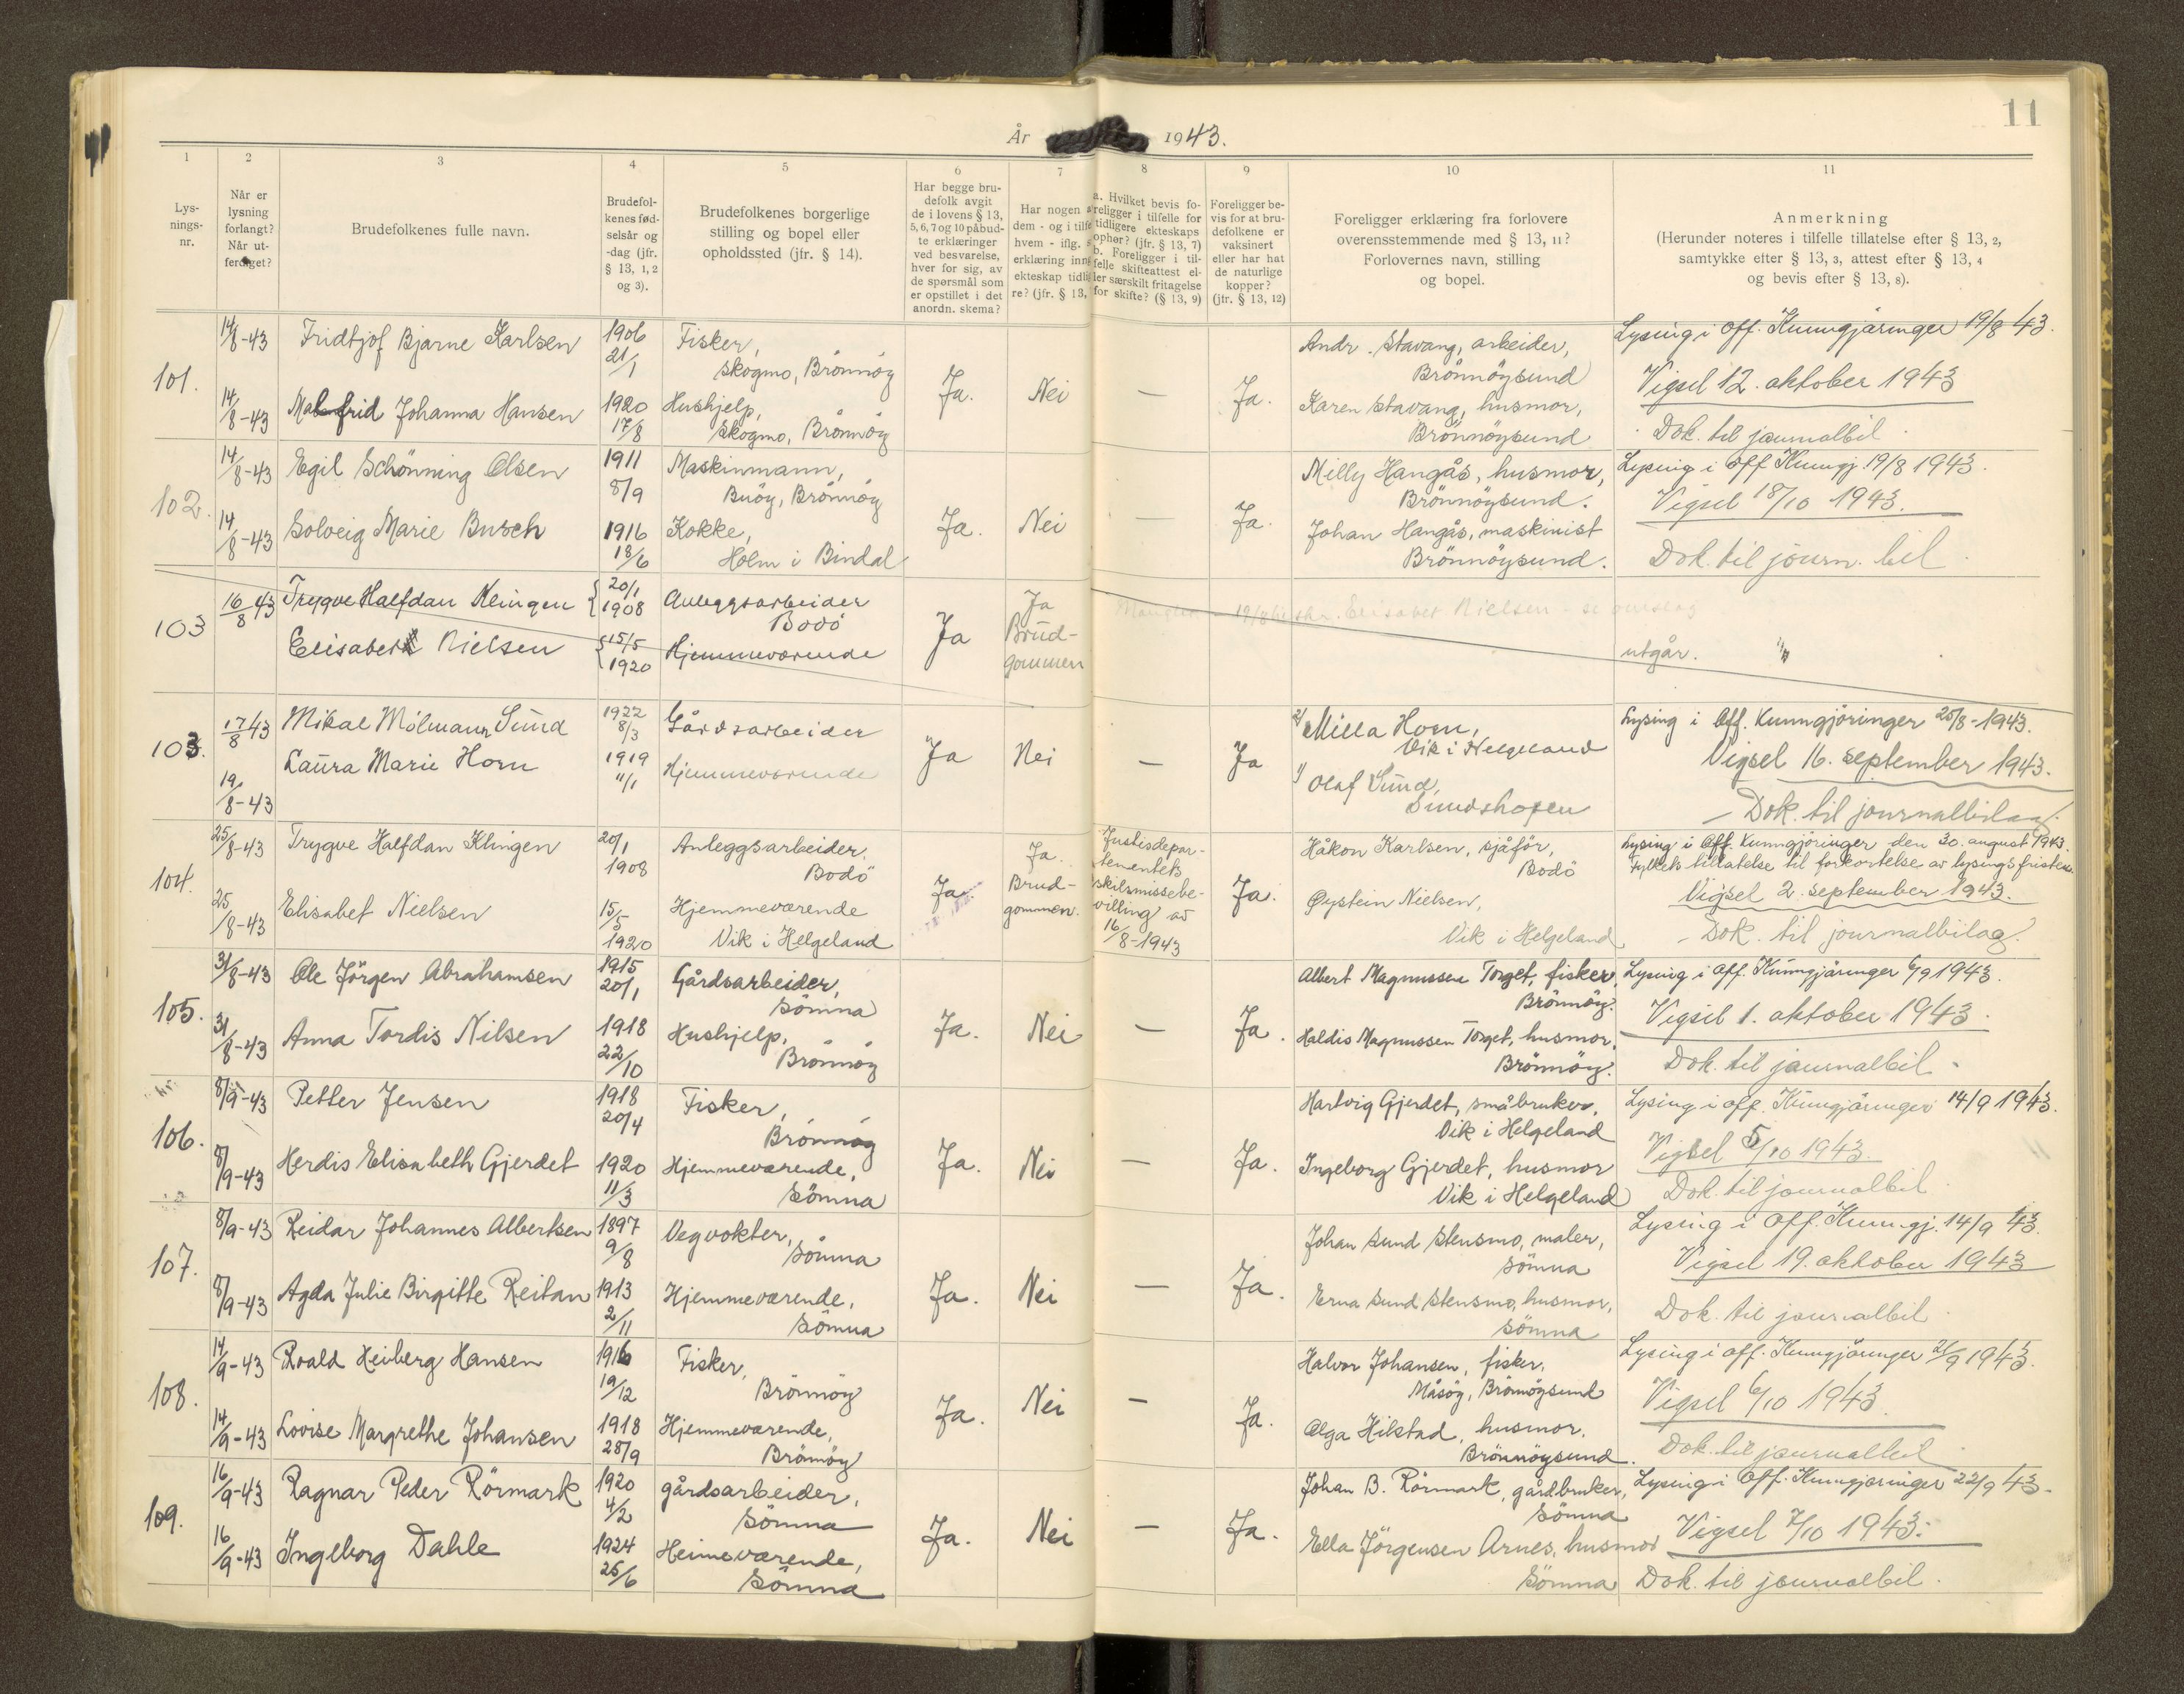 11
År 1943.
1 2 3 4 5 6 7 8 9 10 11
Lys-
nings-
nr.
Når er
lysning
forlangt?
Når ut-
ferdiget?
Brudefolkenes fulle navn.
Brudefol-
kenes fød-
selsår og
-dag (jfr.
§ 13, 1, 2
og 3).
Brudefolkenes borgerlige
stilling og bopel eller
opholdssted (jfr. § 14).
Har begge bru-
defolk avgit
de i lovens § 13,
5, 6, 7 og 10 påbud-
te erklæringer
ved besvarelse,
hver for sig, av
de spørsmål som
er opstillet i det
anordn. skema?
Har nogen a
dem - og i tilfe
hvem - iflg. s
erklæring inng
ekteskap tidli
re? (jfr. § 13,
a. Hvilket bevis fo-
religger i tilfelle for
tidligere ekteskaps
ophør? (jfr. § 13, 7)
b. Foreligger i til-
felle skifteattest el-
ler særskilt fritagelse
for skifte? (§ 13, 9)
Foreligger be-
vis for at bru-
defolkene er
vaksinert
eller har hat
de naturlige
kopper?
(jfr. § 13, 12)
Foreligger erklæring fra forlovere
overensstemmende med § 13, 11?
Forlovernes navn, stilling
og bopel.
Anmerkning
(Herunder noteres i tilfelle tillatelse efter § 13, 2,
samtykke efter § 13, 3, attest efter § 13, 4
og bevis efter § 13, 8).
101.
14/8-43 Fridtjof Bjarne Karlsen
1906
21/1
Fisker,
Skogmo, Brönnöy
14/8-43 Malfrid Johanna Hansen
1920
17/8
Hushjelp,
Skogmo, Brönnöy
Ja. Nei — Ja.
Andr. Stavang, arbeider,
Brönnöysund
Karen Stavang, husmor,
Brönnöysund
Lysing i Off. Kunngjöringer 19/8 43.
Vigsel 12. oktober 1943
Dok. til journalbil.
102.
14/8-43 Egil Schönning Olsen
1911
8/9
Maskinmann,
Buöy, Brönnöy
14/8-43 Solveig Marie Busch
1916
18/6
Kokke,
Holm i Bindal
Ja. Nei — Ja.
Milly Hangås, husmor,
Brönnöysund.
Johan Hangås, maskinist
Brönnöysund.
Lysing i Off Kunngj. 19/8 1943.
Vigsel 18/10 1943.
Dok. til journ. bil.
103
16/8 43 Trygve Halfdan Klingen
20/1
1908
Anleggsarbeider
Bodö
Elisabet Nielsen
15/5
1920
Hjemmeværende
Ja
Ja
Brud-
gommen
Elisabet Nielsen - se
utgår.
103.
17/8 43 Mikal Mölmann Sund
1922
8/3
Gårdsarbeider
Laura Marie Horn
1919
11/1
Hjemmeværende
19/8-43
Ja Nei — Ja
2/ Milla Horn,
Vik i Helgeland
1/ Olaf Sund,
Sundshopen
Lysing i Off. Kunngjöringer 25/8-1943.
Vigsel 16. september 1943.
— Dok. til journalbilag.
104.
25/8-43 Trygve Halfdan Klingen
20/1
1908
Anleggsarbeider,
Bodö
25/8-43 Elisabet Nielsen
15/5
1920
Hjemmeværende
Vik i Helgeland
Ja.
Ja.
Brud-
gommen.
Justisdepar-
tementets
skilsmissebe-
villing av
16/8-1943
Ja.
Håkon Karlsen, sjåför,
Bodö
Øystein Nielsen,
Vik i Helgeland
Lysing i Off. Kunngjöringer den 30. august 1943.
Fylkets tillatelse til forkortelse av lysingsfristen.
Vigsel 2. september 1943.
- Dok. til journalbilag.
105.
31/8-43 Ole Jörgen Abrahamsen
1915
20/1
Gårdsarbeider,
Sömna
31/8-43 Anna Tordis Nilsen
1918
22/10
Hushjelp,
Brönnöy
Ja. Nei — Ja.
Albert Magnussen Torget, fisker,
Brönnöy.
Haldis Magnussen Torget, husmor,
Brönnöy.
Lysing i Off. Kunngjöringer 6/9 1943.
Vigsel 1. oktober 1943.
Dok. til journalbil.
106.
8/9-43 Petter Jensen
1918
20/4
Fisker,
Brönnöy
8/9-43 Herdis Elisabeth Gjerdet
1920
11/3
Hjemmeværende,
Sömna
Ja. Nei — Ja.
Hartvig Gjerdet, småbruker,
Vik i Helgeland
Ingeborg Gjerdet, husmor
Vik i Helgeland
Lysing i off. Kunngjöringer 14/9 1943.
Vigsel 5/10 1943.
Dok. til journalbil
107.
8/9-43 Reidar Johannes Albertsen
1897
9/8
Vegvokter,
Sömna
8/9-43 Agda Julie Birgitte Reitan
1913
2/11
Hjemmeværende,
Sömna
Ja. Nei — Ja.
Johan Sund Stensmo, maler,
Sömna
Erna Sund Stensmo, husmor,
Sömna
Lysing i Off. Kunngj. 14/9 43.
Vigsel 19. oktober 1943
Dok. til journalbil
108.
14/9-43 Roald Heiberg Hansen
1916
19/12
Fisker,
Brönnöy
14/9-43 Lovise Margrethe Johansen
1918
28/9
Hjemmeværende,
Brönnöy
Ja. Nei — Ja.
Halvor Johansen, fisker,
Måsöy, Brönnöysund
Olga Hilstad, husmor,
Brönnöysund.
Lysing i off. Kunngjöringer 21/9 1943.
Vigsel 6/10 1943
Dok. til journalbil
109.
16/9-43 Ragnar Peder Rörmark
1920
4/2
gårdsarbeider,
Sömna
16/9-43 Ingeborg Dahle
1924
25/6
Heimeværende,
Sömna
Ja. Nei — Ja.
Johan B. Rörmark, gårdbruker,
Sömna
Ella Jörgensen Arnes, husmor,
Sömna
Lysing i Off. Kunngjöringer 22/9 43.
Vigsel 7/10 1943.
Dok. til journalbil.